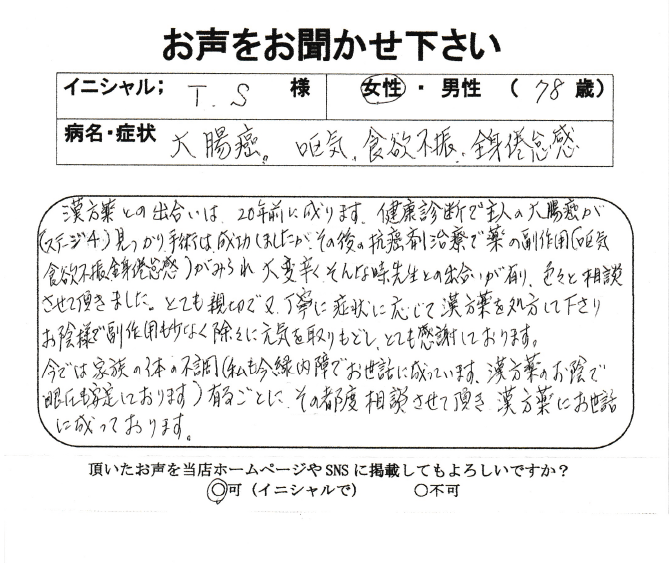 お声をお聞かせ下さい
イニシャル； T.S 様 女性・男性 （ 78 歳）
病名・症状 大腸癌。 嘔気、食欲不振、全身倦怠感
漢方薬との出合いは、20年前に成ります。健康診断で主人の大腸癌が
(ステージ4)見つかり手術は成功しましたが、その後の抗癌剤治療で薬の副作用(嘔気
食欲不振全身倦怠感)がみられ大変辛く、そんな時先生との出合いが有り、色々と相談
させて頂きました。とても親切で又、丁寧に症状に応じて漢方薬を処方して下さり
お陰様で副作用も少なく除々に元気を取りもどし、とても感謝しております。
今では家族の体の不調(私も今緑内障でお世話に成っています、漢方薬のお陰で
眼圧も安定しております)有るごとに、その都度相談させて頂き漢方薬にお世話
に成っております。
頂いたお声を当店ホームページやSNSに掲載してもよろしいですか？
○可（イニシャルで） ○不可